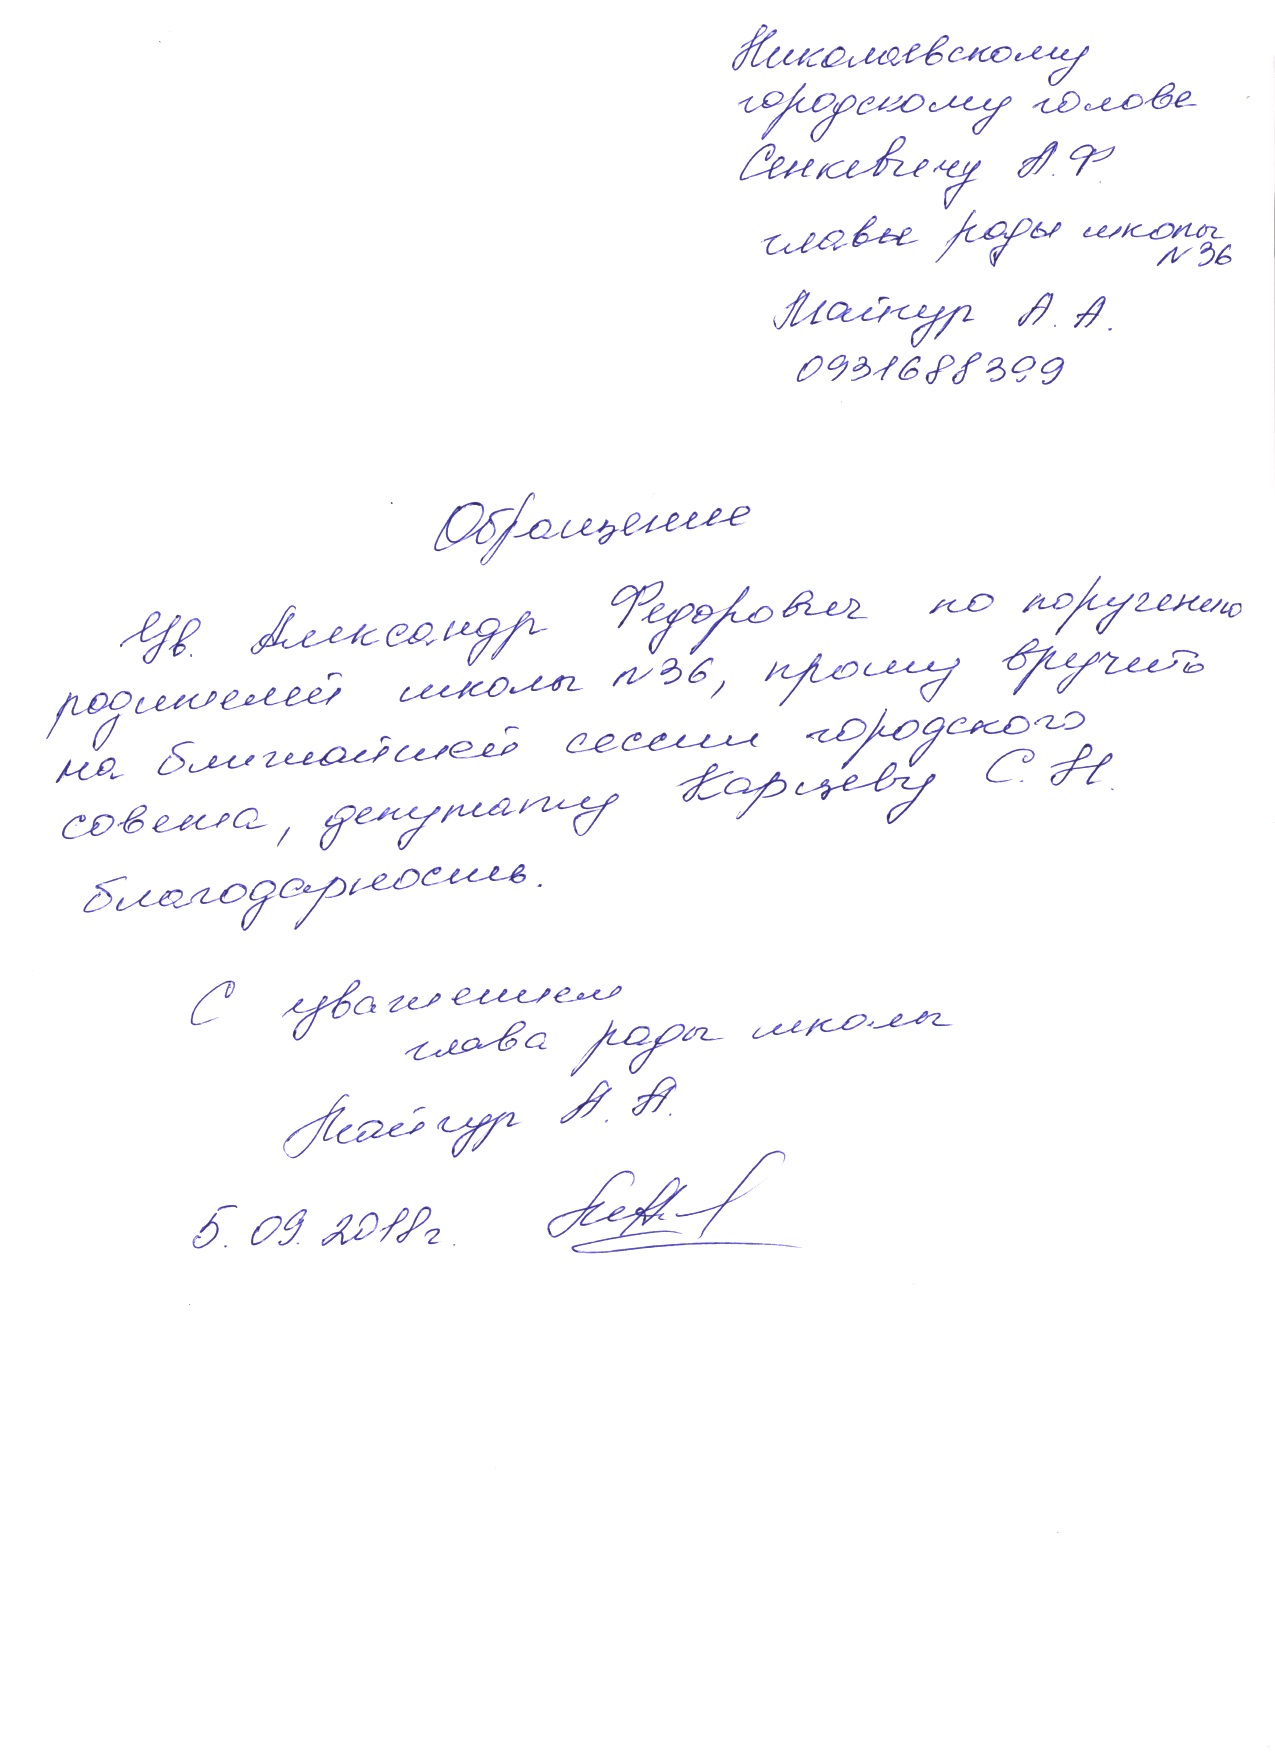 Николаевскому
городскому голове
Сенкевичу А.Ф.
главы рады школы
N 36
Майгур А. А.
0931688399
Обращение
Ув. Александр Федорович по поручению
родителей школы N 36, прошу вручить
на ближайшей сессии городского
совета, депутату Карцеву С. Н.
благодарность.
С уважением
глава рады школы
Майгур А. А.
5. 09. 2018г.